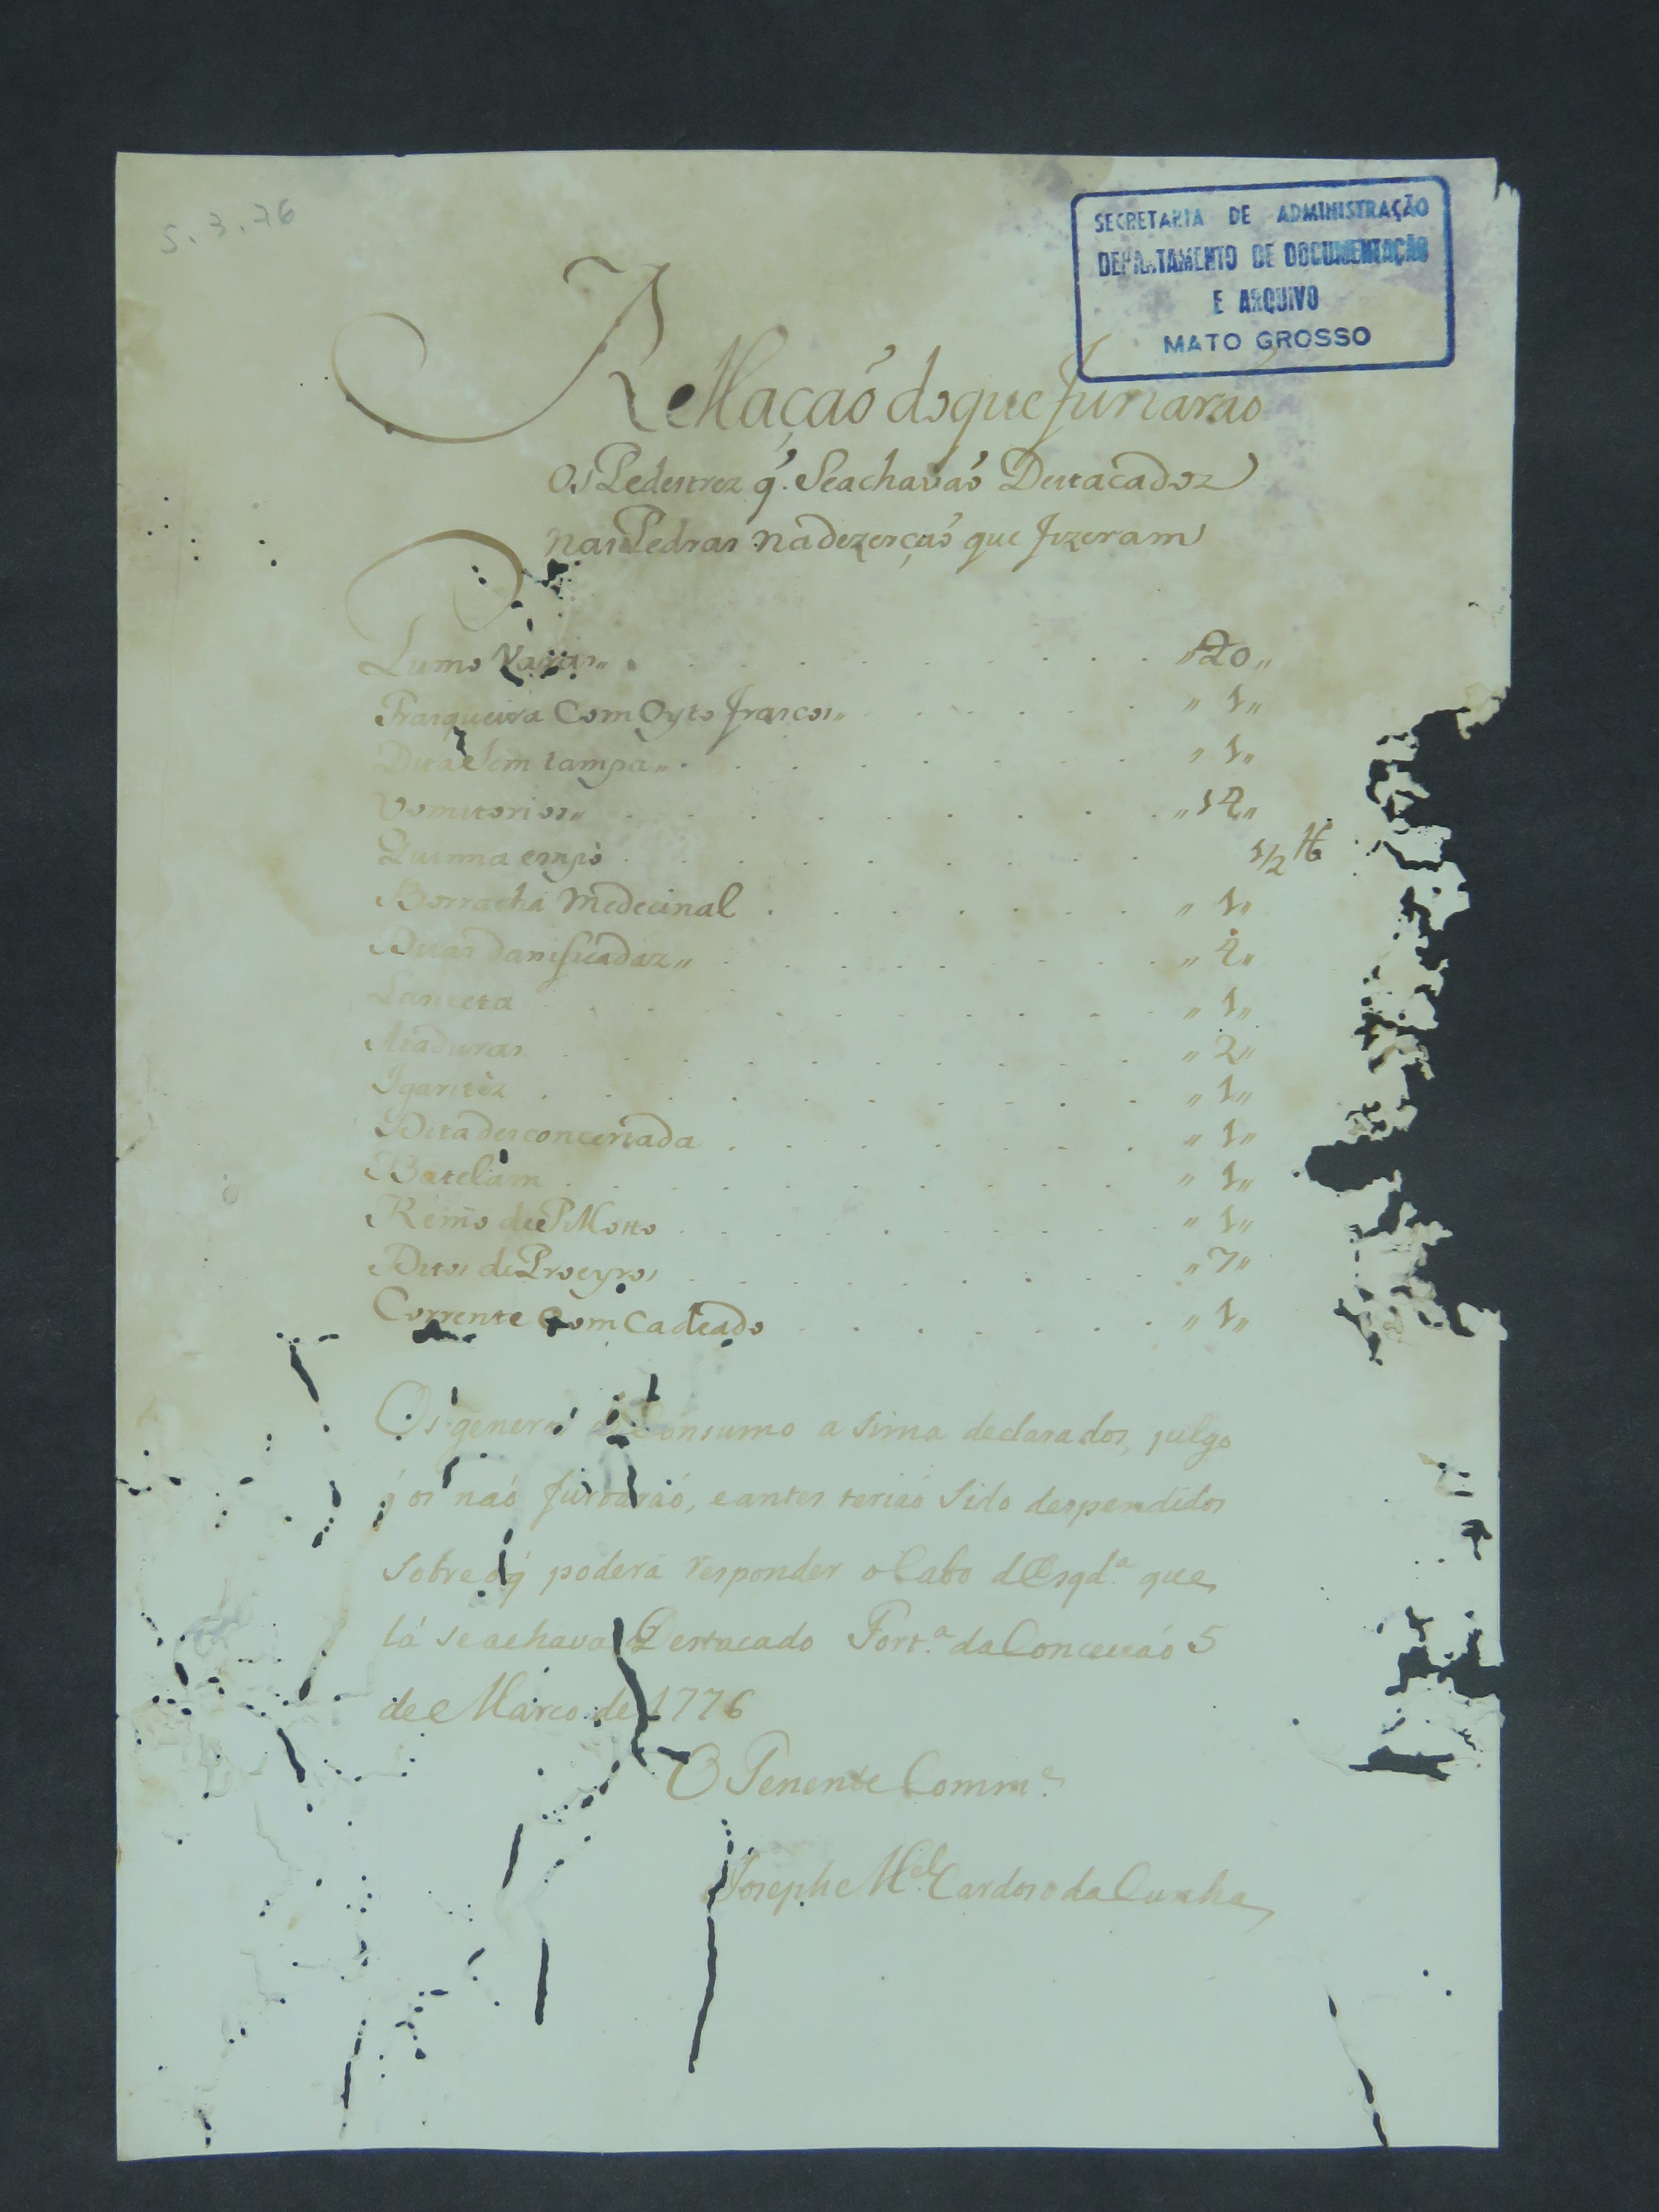 5.3.76
SECRETARIA DE ADMINISTRAÇÃO
DEPARTAMENTO DE DOCUMENTAÇÃO
E ARQUIVO
MATO GROSSO
Rellaçaó doque furtaraõ
Os Pedestrez q̃. Seachavaó Destacadoz
nas Pedras na dezerçaó que fizeram
Fumo Varas,, . . . . . . . . . . ,,20,,
Frasqueira Com Oyto frascos,, . . . . . . ,,1,,
Dita Sem tampa,, . . . . . . . . ,,1,,
Vomitorios,, . . . . . . . . ,,12,,
Quinna empó . . . . . . . . . 1/2 ℔
Borracha Medecinal . . . . . . . ,,1,,
Ditas danificadaz,, . . . . . . . . ,,2,,
Lanceta . . . . . . . . . . ,,1,,
Ataduras . . . . . . . . . . ,,2,,
Igaritéz . . . . . . . . . . ,,1,,
Dita desconcertada . . . . . . . ,,1,,
Batelam . . . . . . . . . . ,,1,,
Remo de PiLotto . . . . . . . . ,,1,,
Ditos de Proeyros . . . . . . . . ,,7,,
Corrente Com Cadeado . . . . . . . ,,1,,
Os generos de Consumo a sima declarados, julgo
q̃ os naó furtaraó, e antes teriaó Sido despendidos
sobre o q̃ poderá responder o Cabo d Esqd.ª que
lá se achava Destacado Fort.ª da Conceicaó 5
de Marco de 1776
O Tenente Comm.e
Joseph M.el Cardoso da Cunha